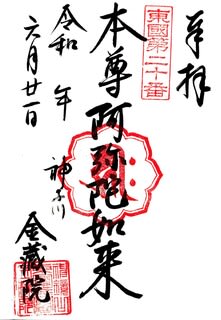 奉拝
東國第二十番
本尊阿弥陀如来
令和 年
六月廿一日
神奈川
金蔵院